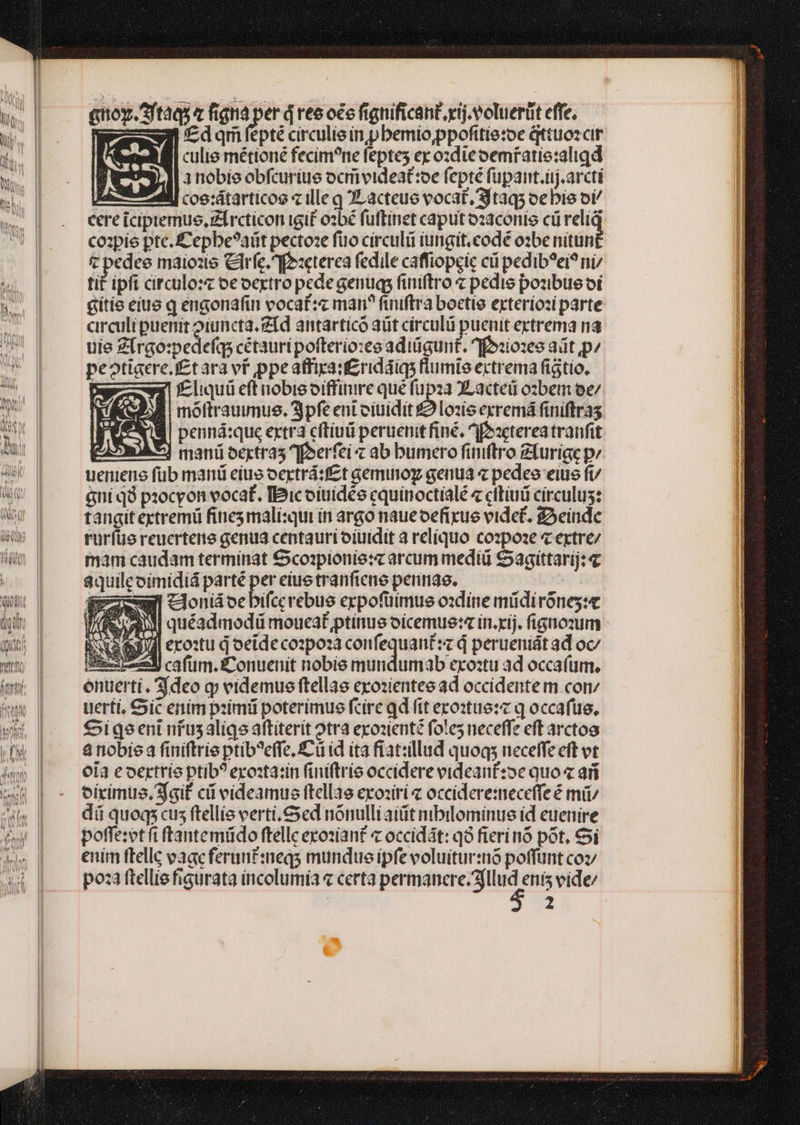 gnoꝝ. Itaqʒ ⁊ signa per q̃ res oẽs significant᷑.xij.voluerũt esse.
Ed qm̃ septẽ circulis in ꝓhemio ꝓpositis:de q̃ttuoꝛ cir
culis mẽtionẽ fecimꝰne septeʒ ex oꝛdie demratis:aliqd
a nobis obscurius dcm̃ videat᷑:de septẽ supant.iij.arcti
cos:ãtarticos ⁊ ille q Lacteus vocat᷑. Itaqʒ de his di/
cere ĩcipiemus. Arcticon igit᷑ oꝛbẽ sustinet caput dꝛaconis cũ reliq̃
coꝛpis ptc. Cepheꝰaũt pectoꝛe suo circulũ iungit.eodẽ oꝛbe nitunt᷑
⁊ pedes maioꝛis Ursę. Pꝛęterea sedile cassiopeię cũ pedibꝰeiꝰ ni/
tit᷑ ipsi circulo:⁊ de dextro pede genuqʒ sinistro ⁊ pedis pꝛioꝛibus di
gitis eius q engonasin vocat᷑:⁊ manꝰ sinistra boetis exterioꝛi parte
circuli puenit ꝯiuncta. Ad antarticõ aũt circulũ puenit extrema na
uis Argo:pedesqʒ cẽtauri posterioꝛes adiũgunt᷑. Pꝛioꝛes aũt ꝓ/
pe ꝯtigere. Et ara vt᷑ ꝓpe affixa: Eridãiqʒ flumis extrema figtio.
Eliquũ est nobis diffinire quẽ supꝛa Lacteũ oꝛbem de/
mõstrauimus. Ipse eni diuidit Oloꝛis extremã sinistraʒ
pennã:que extra ęstiuũ peruenit finẽ. Pꝛęterea transit
manũ dextraʒ Persei ⁊ ab humero sinistro Aurigę ꝑ/
ueniens sub manũ eius dextrã: Et geminoꝝ genua ⁊ pedes eius si/
gni qđ pꝛocyon vocat᷑. Hic diuidẽs equinoctialẽ ⁊ ęstiuũ circuluʒ:
tangit extremũ fineʒ mali:qui in argo naue defixus videt᷑. Deinde
rursus reuertens genua centauri diuidit a reliquo coꝛpoꝛe ⁊ extre/
mam caudam terminat Scoꝛpionis:⁊ arcum mediũ Sagittarij: ⁊
aquilę dimidiã partẽ per eius transiens pennas.
Uoniã de hisce rebus exposuimus oꝛdine mũdi rõneʒ:⁊
quẽadmodũ moueat᷑ ꝓtinus dicemus:⁊ in.xij. signoꝛum
exoꝛtu q̃ deĩde coꝛpoꝛa consequant᷑:⁊ q̃ perueniãt ad oc/
casum. Conuenit nobis mundum ab exoꝛtu ad occasum.
ꝯnuerti. Ideo ꝙ videmus stellas exoꝛientes ad occidentem con/
uerti. Sic enim pꝛimũ poterimus scire qd sit exoꝛtus:⁊ q occasus.
Si qs eni nr̃uʒ aliqs astiterit ꝯtra exoꝛientẽ soleʒ necesse est arctos
a nobis a sinistris ptibꝰesse. Cũ id ita fiat:illud quoqʒ necesse est vt
oĩa e dextris ptibꝰ exoꝛta:in sinistris occidere videant᷑:de quo ⁊ añ
diximus. Igit᷑ cũ videamus stellas exoꝛiri ⁊ occidere:necesse ẽ mũ/
dũ quoqʒ cuʒ stellis verti. Sed nõnulli aiũt nihilominus id euenire
posse:vt si stante mũdo stellę exoꝛiant᷑ ⁊ occidãt: qđ fieri nõ põt. Si
enim stellę vagę ferunt᷑:neqʒ mundus ipse voluitur:nõ possunt coꝛ/
poꝛa stellis figurata incolumia ⁊ certa permanere. Illud eniʒ vide/
§ 2